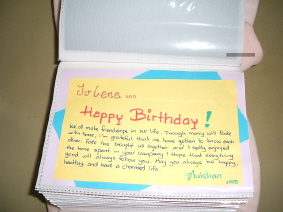 To Gene ...
Happy Birthday!
We all make friendships in our life. Though many will fade
with time, I'm grateful that we have gotten to know each
other. Fate has brought us together and I really enjoyed
the time spent in your company! I hope that everything
good will always follow you. May you always be happy
healthy and have a charmed life.
Huishan